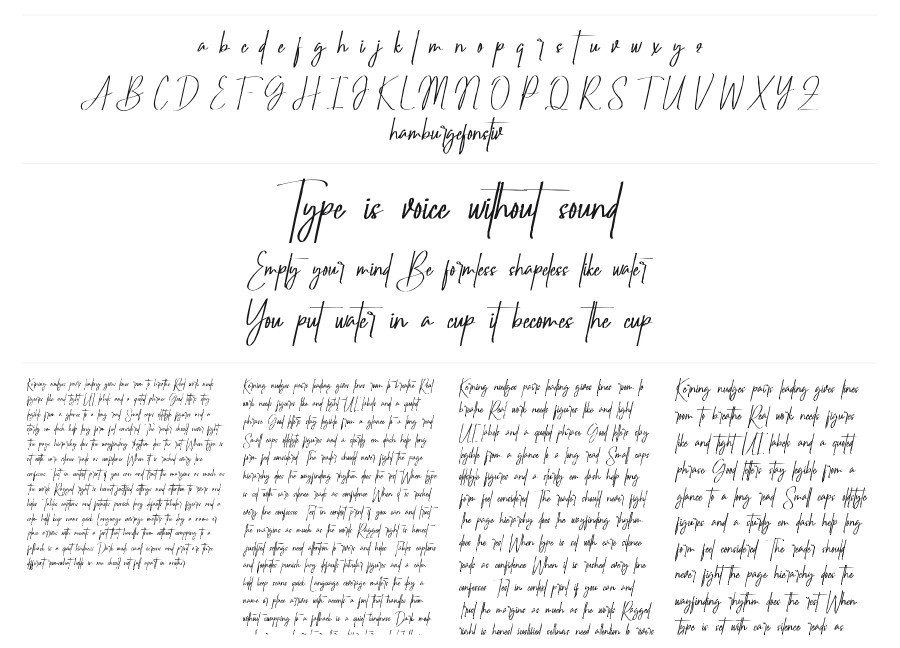 a b c d e f g h i j k l m n o p q r s t u v w x y z
A B C D E F G H I J K L M N O P Q R S T U V W X Y Z
hamburgefonstiv
Type is voice without sound
Empty your mind Be formless shapeless like water
You put water in a cup it becomes the cup
Kerning nudges pairs leading gives lines room to breathe Real work needs
figures like and tight UI labels and a quoted phrase Good letters stay
legible from a glance to a long read Small caps oldstyle figures and a
sturdy em dash help long form feel considered The reader should never fight
the page hierarchy does the wayfinding rhythm does the rest When type is
set with care silence reads as confidence When it is rushed every line
confesses Test in context print if you can and trust the margins as much as
the words Ragged right is honest justified settings need attention to rivers and
holes Tables captions and footnotes punish lazy defaults tabular figures and a
calm bold keep scans quick Language coverage matters the day a name or
place arrives with accents a font that handles them without swapping to a
fallback is a quiet kindness Dark mode small screens and print are three
different somewhat labs so one should not fall apart in another
Kerning nudges pairs leading gives lines room to breathe Real
work needs figures like and tight UI labels and a quoted
phrase Good letters stay legible from a glance to a long read
Small caps oldstyle figures and a sturdy em dash help long
form feel considered The reader should never fight the page
hierarchy does the wayfinding rhythm does the rest When type
is set with care silence reads as confidence When it is rushed
every line confesses Test in context print if you can and trust
the margins as much as the words Ragged right is honest
justified settings need attention to rivers and holes Tables captions
and footnotes punish lazy defaults tabular figures and a calm
bold keep scans quick Language coverage matters the day a
name or place arrives with accents a font that handles them
without swapping to a fallback is a quiet kindness Dark mode
Kerning nudges pairs leading gives lines room to
breathe Real work needs figures like and tight
UI labels and a quoted phrase Good letters stay
legible from a glance to a long read Small caps
oldstyle figures and a sturdy em dash help long
form feel considered The reader should never fight
the page hierarchy does the wayfinding rhythm
does the rest When type is set with care silence
reads as confidence When it is rushed every line
confesses Test in context print if you can and
trust the margins as much as the words Ragged
right is honest justified settings need attention to rivers
Kerning nudges pairs leading gives lines
room to breathe Real work needs figures
like and tight UI labels and a quoted
phrase Good letters stay legible from a
glance to a long read Small caps oldstyle
figures and a sturdy em dash help long
form feel considered The reader should
never fight the page hierarchy does the
wayfinding rhythm does the rest When
type is set with care silence reads as